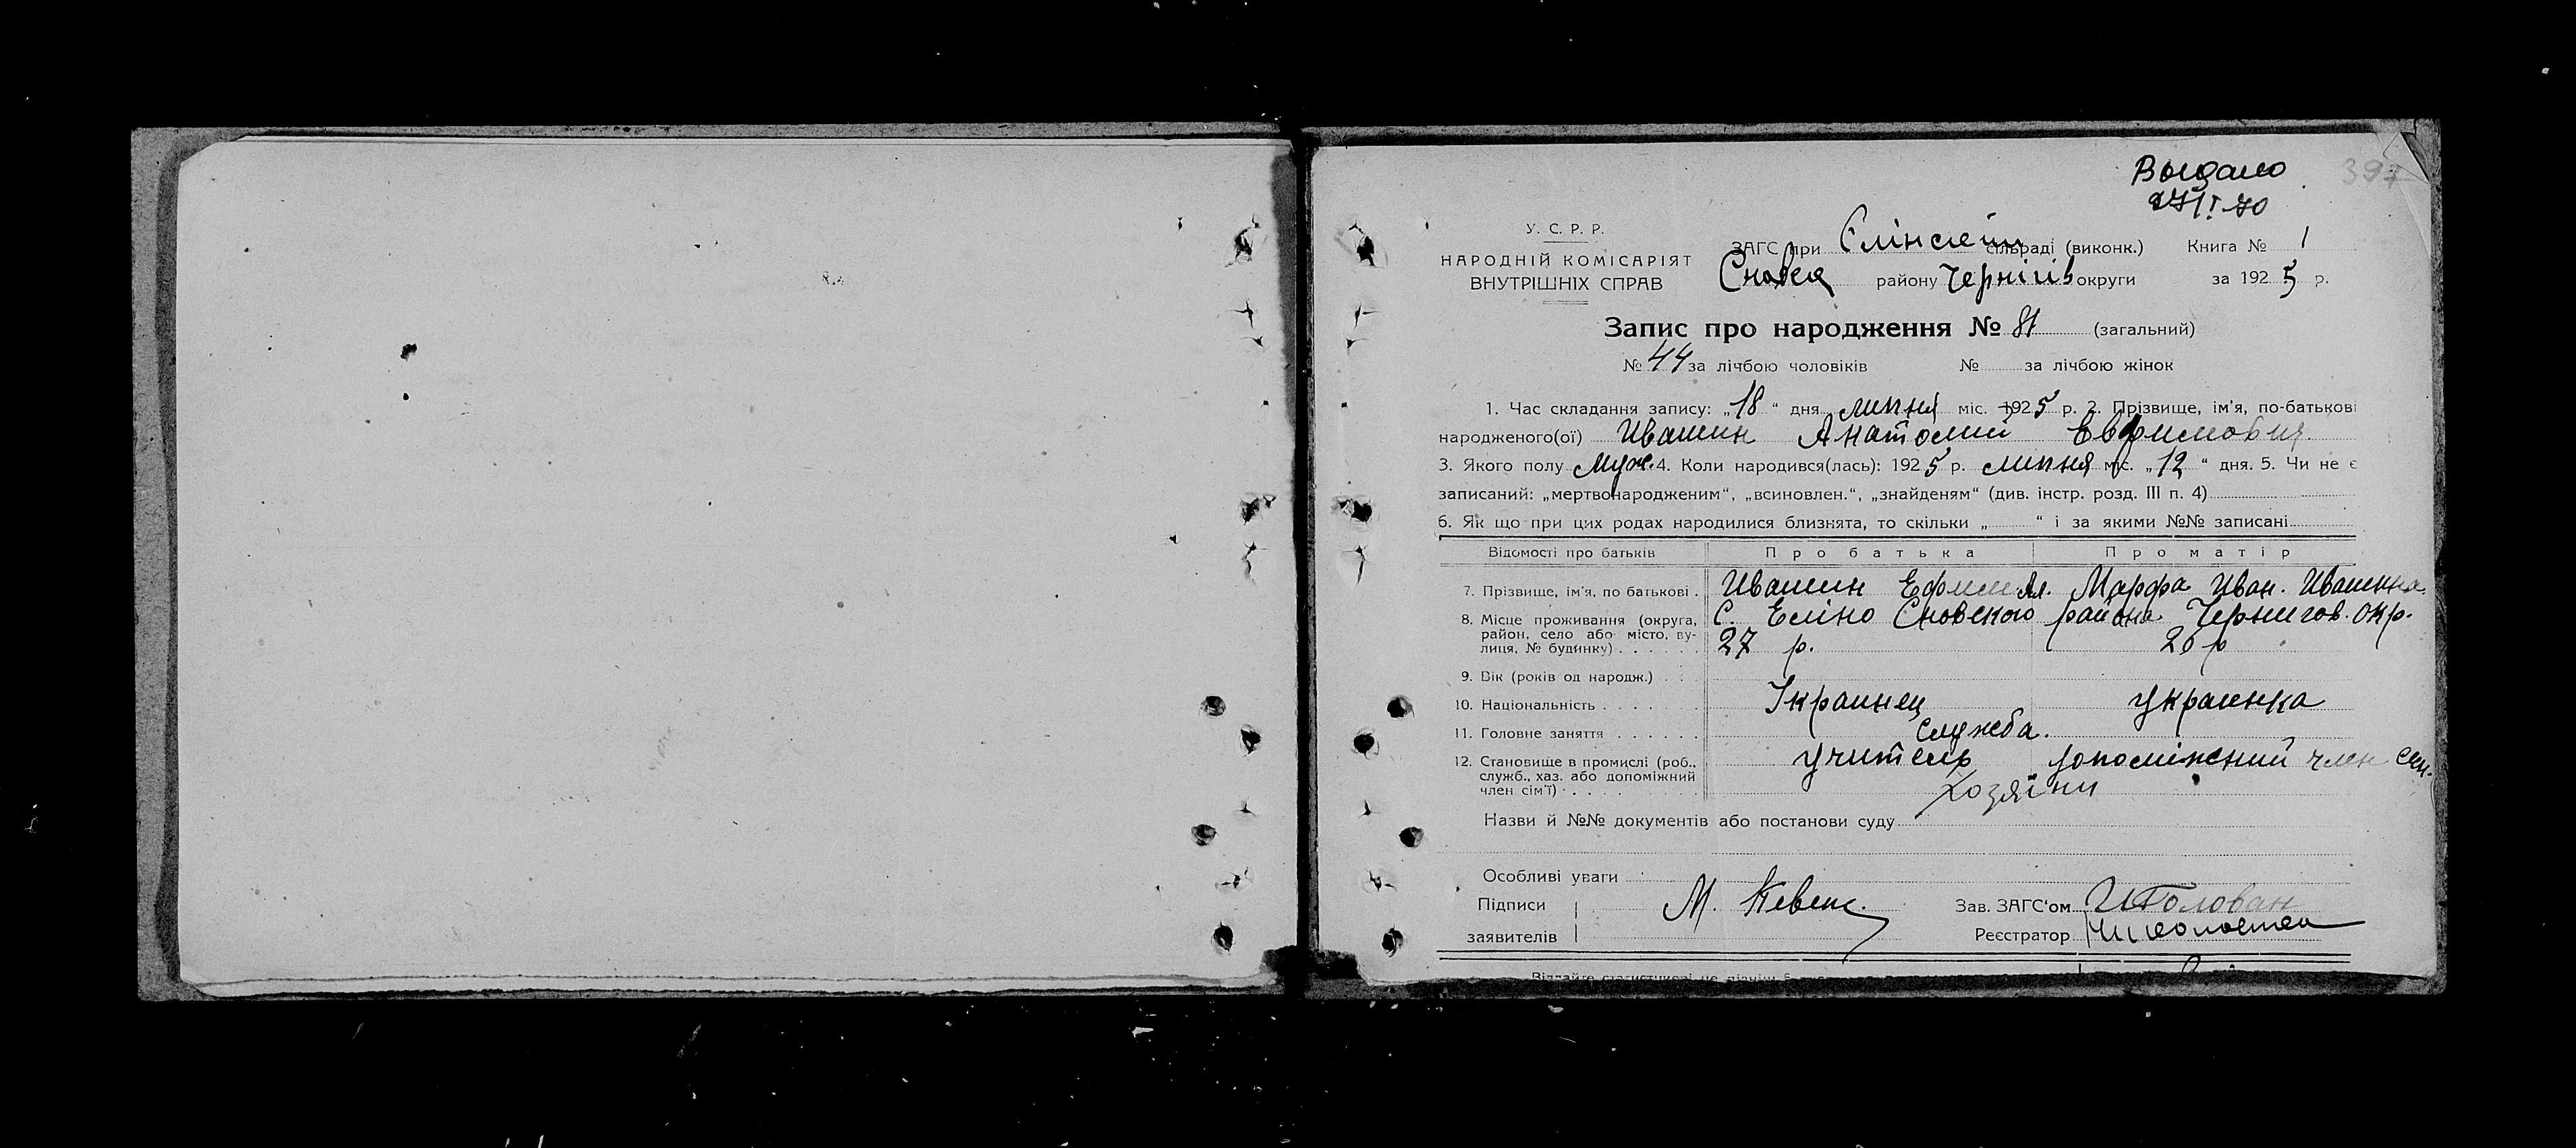 Выдано
397
У. С. Р. Р.
НАРОДНІЙ КОМІСАРІЯТ
ВНУТРІШНІХ СПРАВ
ЗАГС при Єлінській сільраді (виконк.) Книга № 1
Сновск району Чернігів округи за 1925 р.
Запис про народження № 81 (загальний)
№ 44 за лічбою чоловіків № за лічбою жінок
1. Час складання запису: „18“ дня липня міс. 1925 р. 2. Прізвище, ім'я, по-батькові
народженого(ої) Ивашин Анатолий Евфимович
3. Якого полу муж. 4. Коли народився(лась): 1925 р. липня міс. „12“ дня. 5. Чи не є
записаний: „мертвонародженим“, „всиновлен.“, „знайденям“ (див. інстр. розд. III п. 4)
6. Як що при цих родах народилися близнята, то скільки „ “ і за якими №№ записані
Відомості про батьків Про батька Про матір
7. Прізвище, ім'я, по батькові . Ивашин Ефим Ал. Марфа Иван. Ивашина
8. Місце проживання (округа, район, село або місто, вулиця, № будинку) . . . . . С. Еліно Сновского района Чернигов. окр.
27 р. 26 р
9. Вік (років од народж.) . .
10. Національність . . . . . . Українец украинка
11. Головне заняття . . . . . . служба.
12. Становище в промислі (роб., служб., хаз. або допоміжний член сім'ї) . . . учитель допоміжний член сем.
Хозяїни
Назви й №№ документів або постанови суду
Особливі уваги
Підписи М. Зав. ЗАГС'ом Голован
заявителів Реєстратор